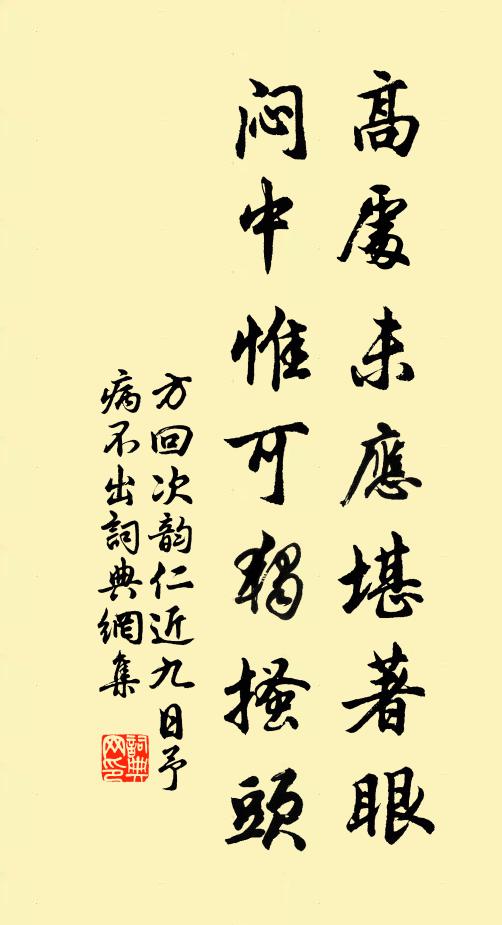 高處未應堪著眼
悶中惟可獨搔頭
方回次韵仁近九日予
病不出詞典網集
詞典網印